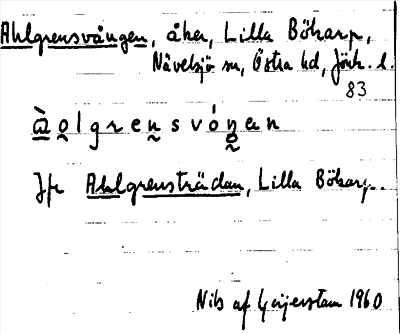 Ahlgrensvången, åker, Lilla Bökarp,
Nävelsjö sn, Östra hd, Jönk. l.
83
à̱o̰lgrens̰vóṋ̰an
Jfr Ahlgrensträdan, Lilla Bökarp.
Nils af Geijerstam 1960